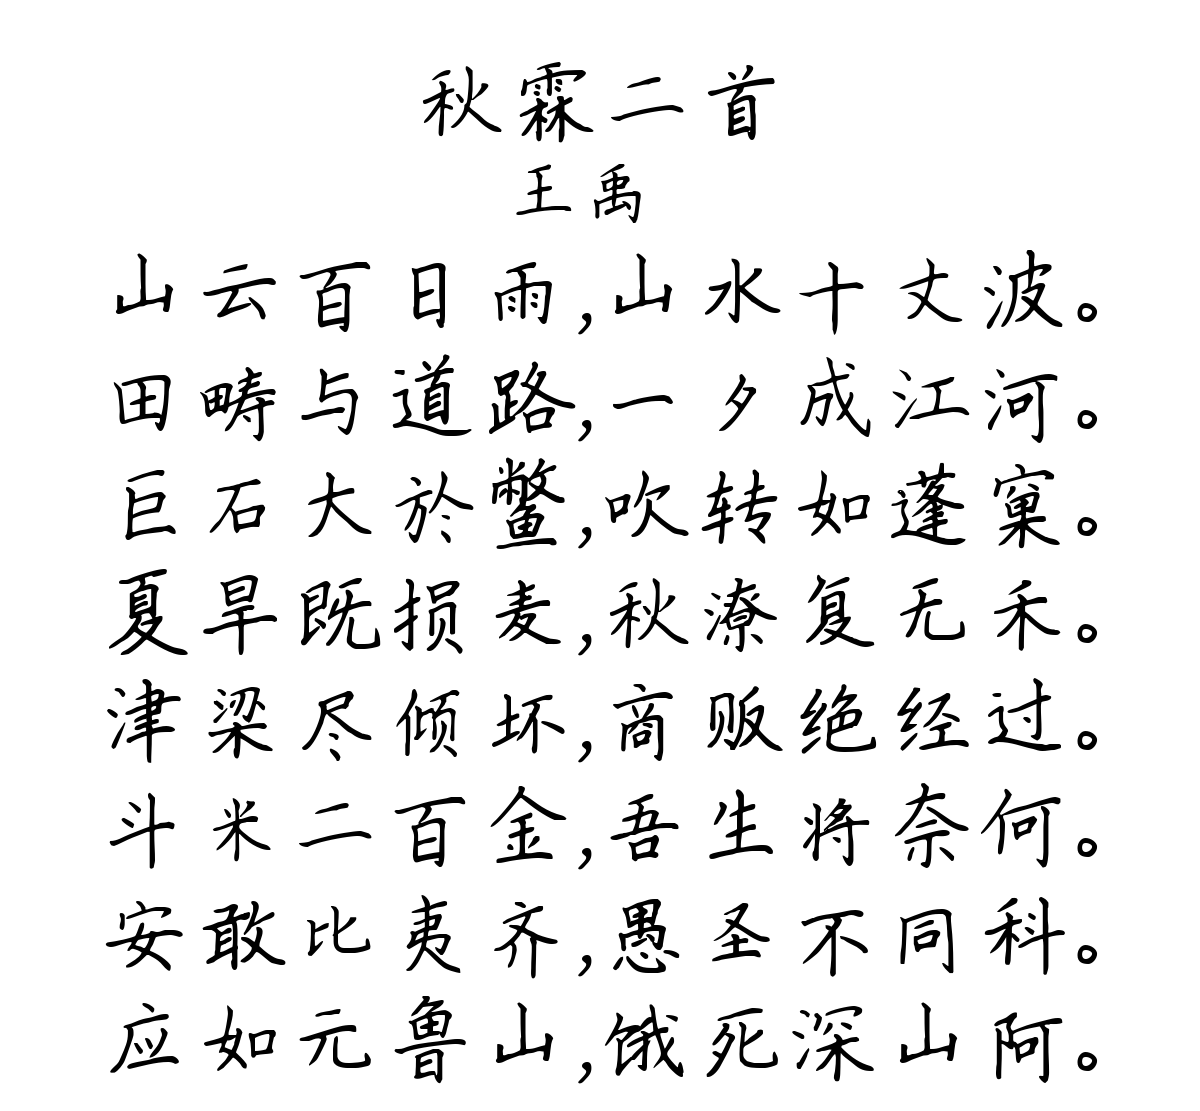 秋霖二首
王禹
山云百日雨,山水十丈波。
田畴与道路,一夕成江河。
巨石大於鳖,吹转如蓬窠。
夏旱既损麦,秋潦复无禾。
津梁尽倾坏,商贩绝经过。
斗米二百金,吾生将奈何。
安敢比夷齐,愚圣不同科。
应如元鲁山,饿死深山阿。